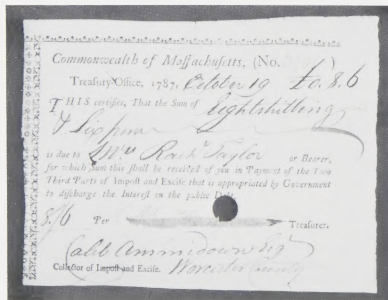 Commonwealth of Massachusetts, (No.
Treasury Office, 1787, October 19 £0.8.6
THIS certifies, That the Sum of Eight shillings
& Six pence
is due to Mrs Rachl Taylor or Bearer,
for which Sum this shall be received of you in Payment of the Two
Third Parts of Impost and Excise that is appropriated by Government
to discharge the Interest in the public Debt.
8/6 Per Treasurer.
Caleb Ammidown Esqr
Collector of Impost and Excise. Worcester County